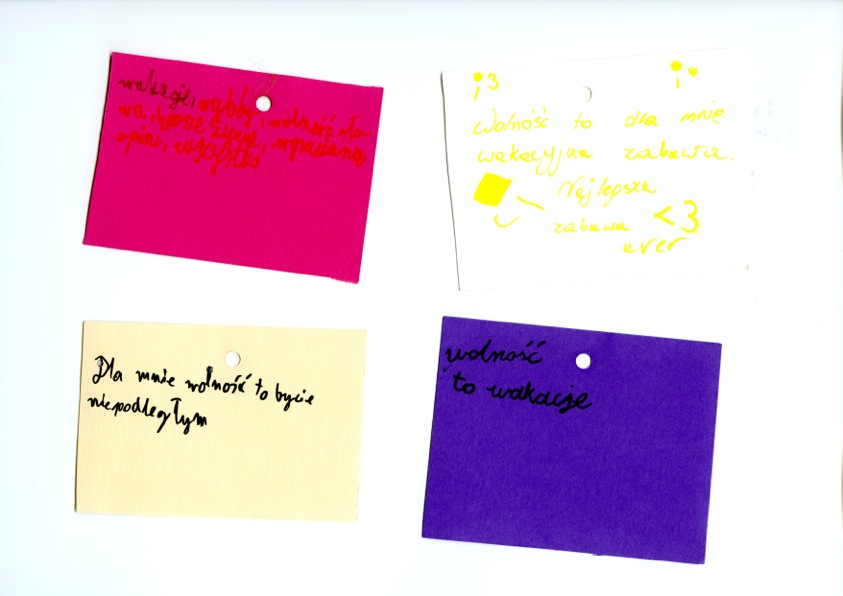 wakacje, wybór, wolność sło-
wa, życie,
opini, wszystko
Wolność to dla mnie
wakacyjna zabawa.
Najlepsza
zabawa <3
ever
Dla mnie wolność to bycie
niepodległym
wolność
to wakacje